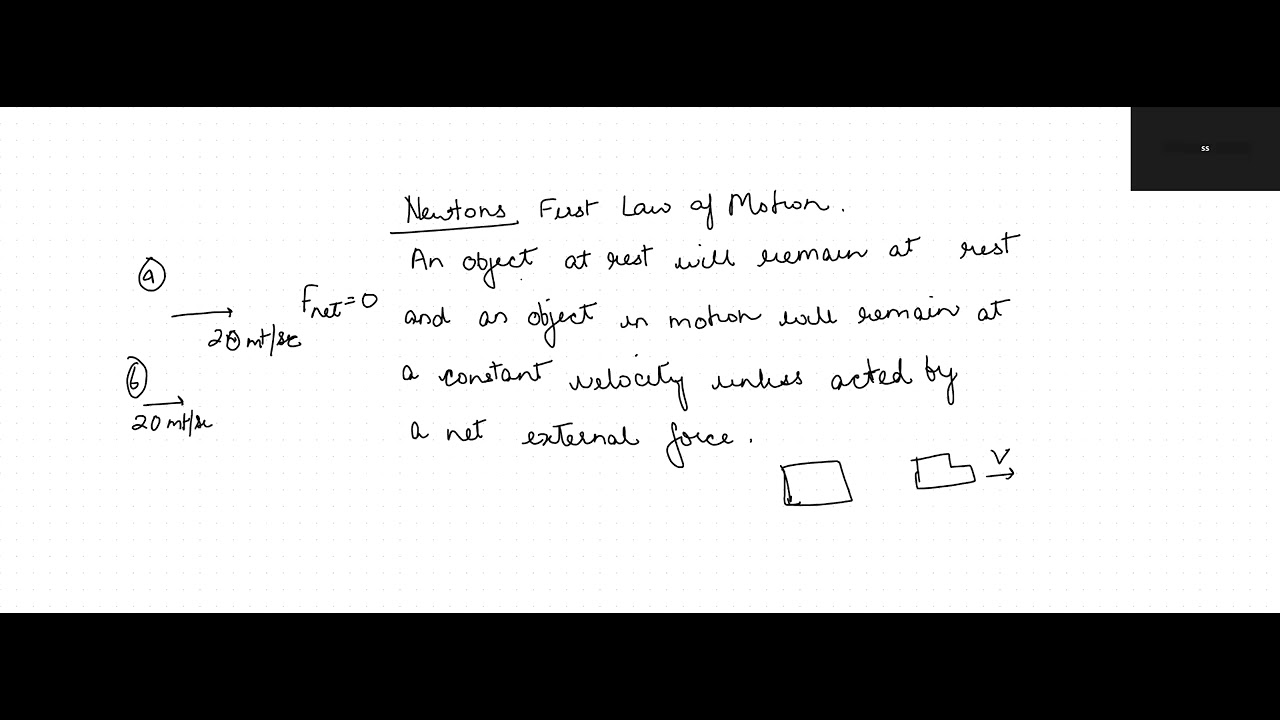 ss
Newtons First Law of Motion.
An object at rest will remain at rest
and an object in motion will remain at
a constant velocity unless acted by
a net external force.
a
20 mt/sec
Fnet=0
6
20 mt/se
V